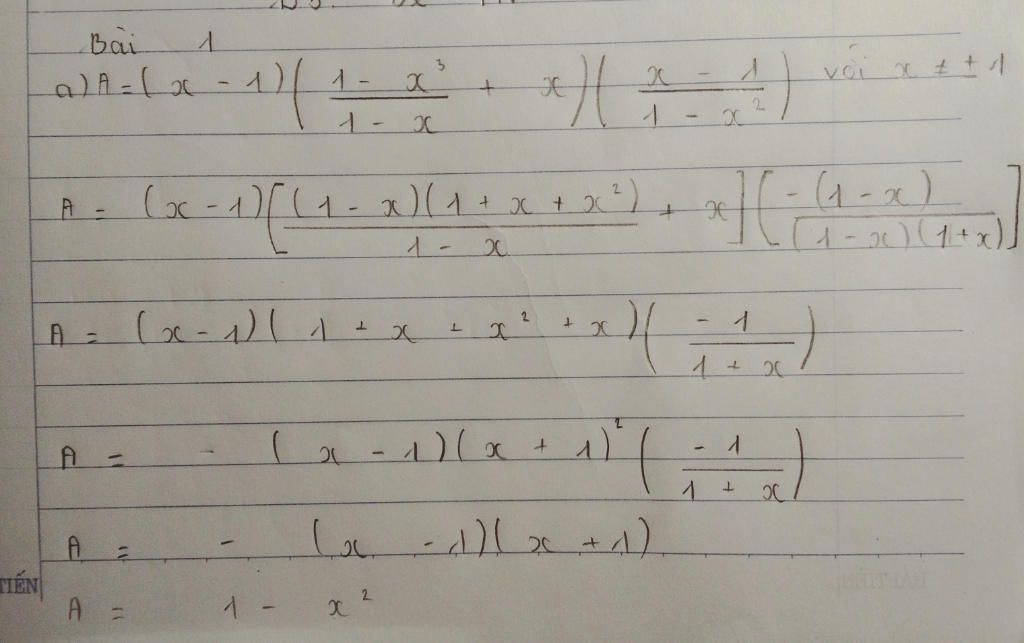 Bài 1
a) A = (x - 1)((1 - x³)/(1 - x) + x)((x - 1)/(1 - x²)) với x ≠ ± 1
A = (x - 1)[((1 - x)(1 + x + x²))/(1 - x) + x][(-(1 - x))/((1 - x)(1 + x))]
A = (x - 1)(1 + x + x² + x)((-1)/(1 + x))
A = - (x - 1)(x + 1)²((-1)/(1 + x))
A = - (x - 1)(x + 1)
TIẾN
A = 1 - x²